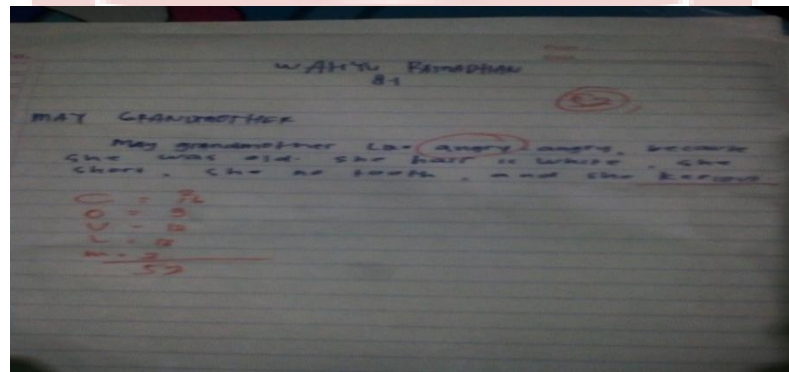 WAHYU RAMADHAN
8-1
MAY GRANDMOTHER
May grandmother angry angry, because
she was old. she hair is white. she
short. she no tooth. and she
C =
O =
V =
L =
M =
57